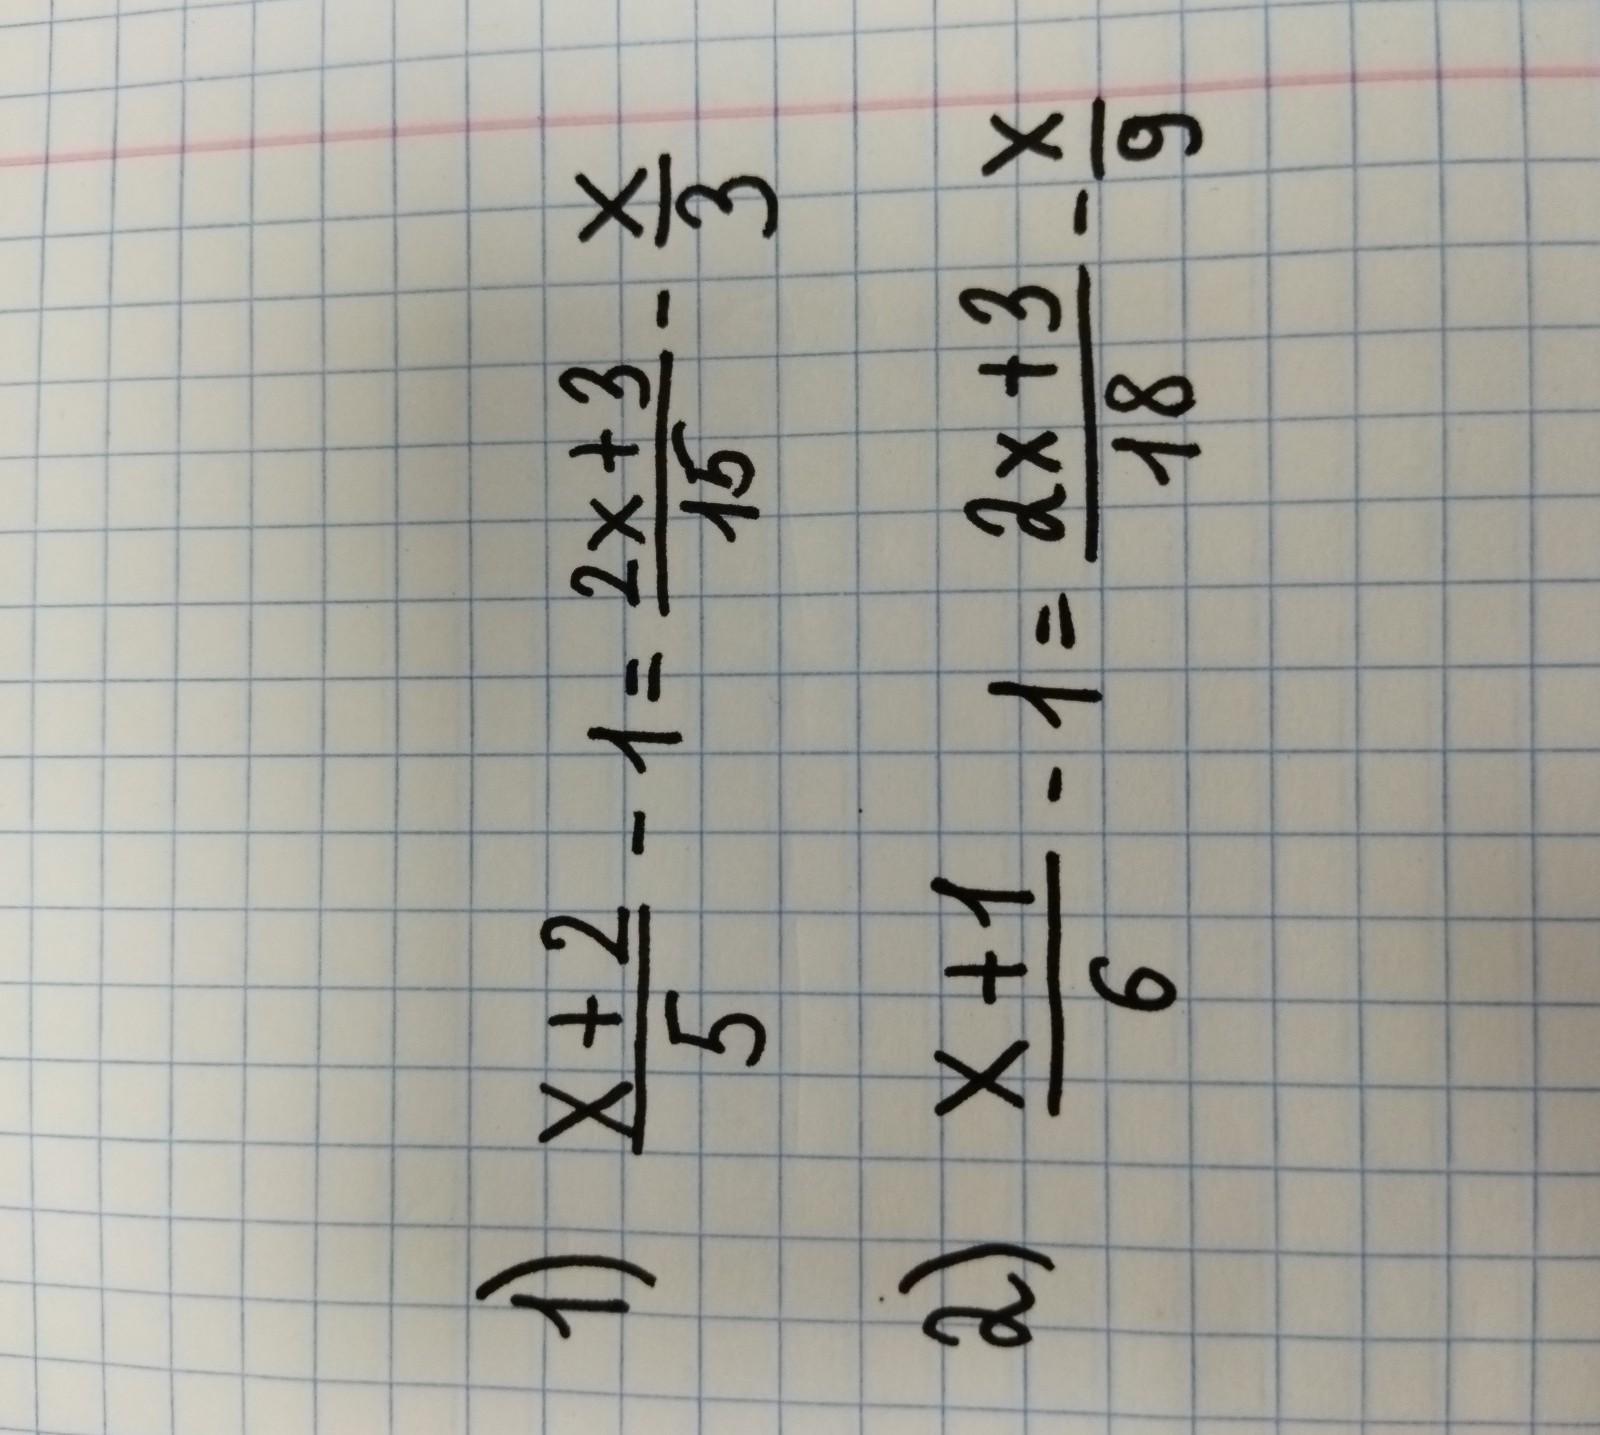 1) (x+2)/5 - 1 = (2x+3)/15 - x/3
2) (x+1)/6 - 1 = (2x+3)/18 - x/9